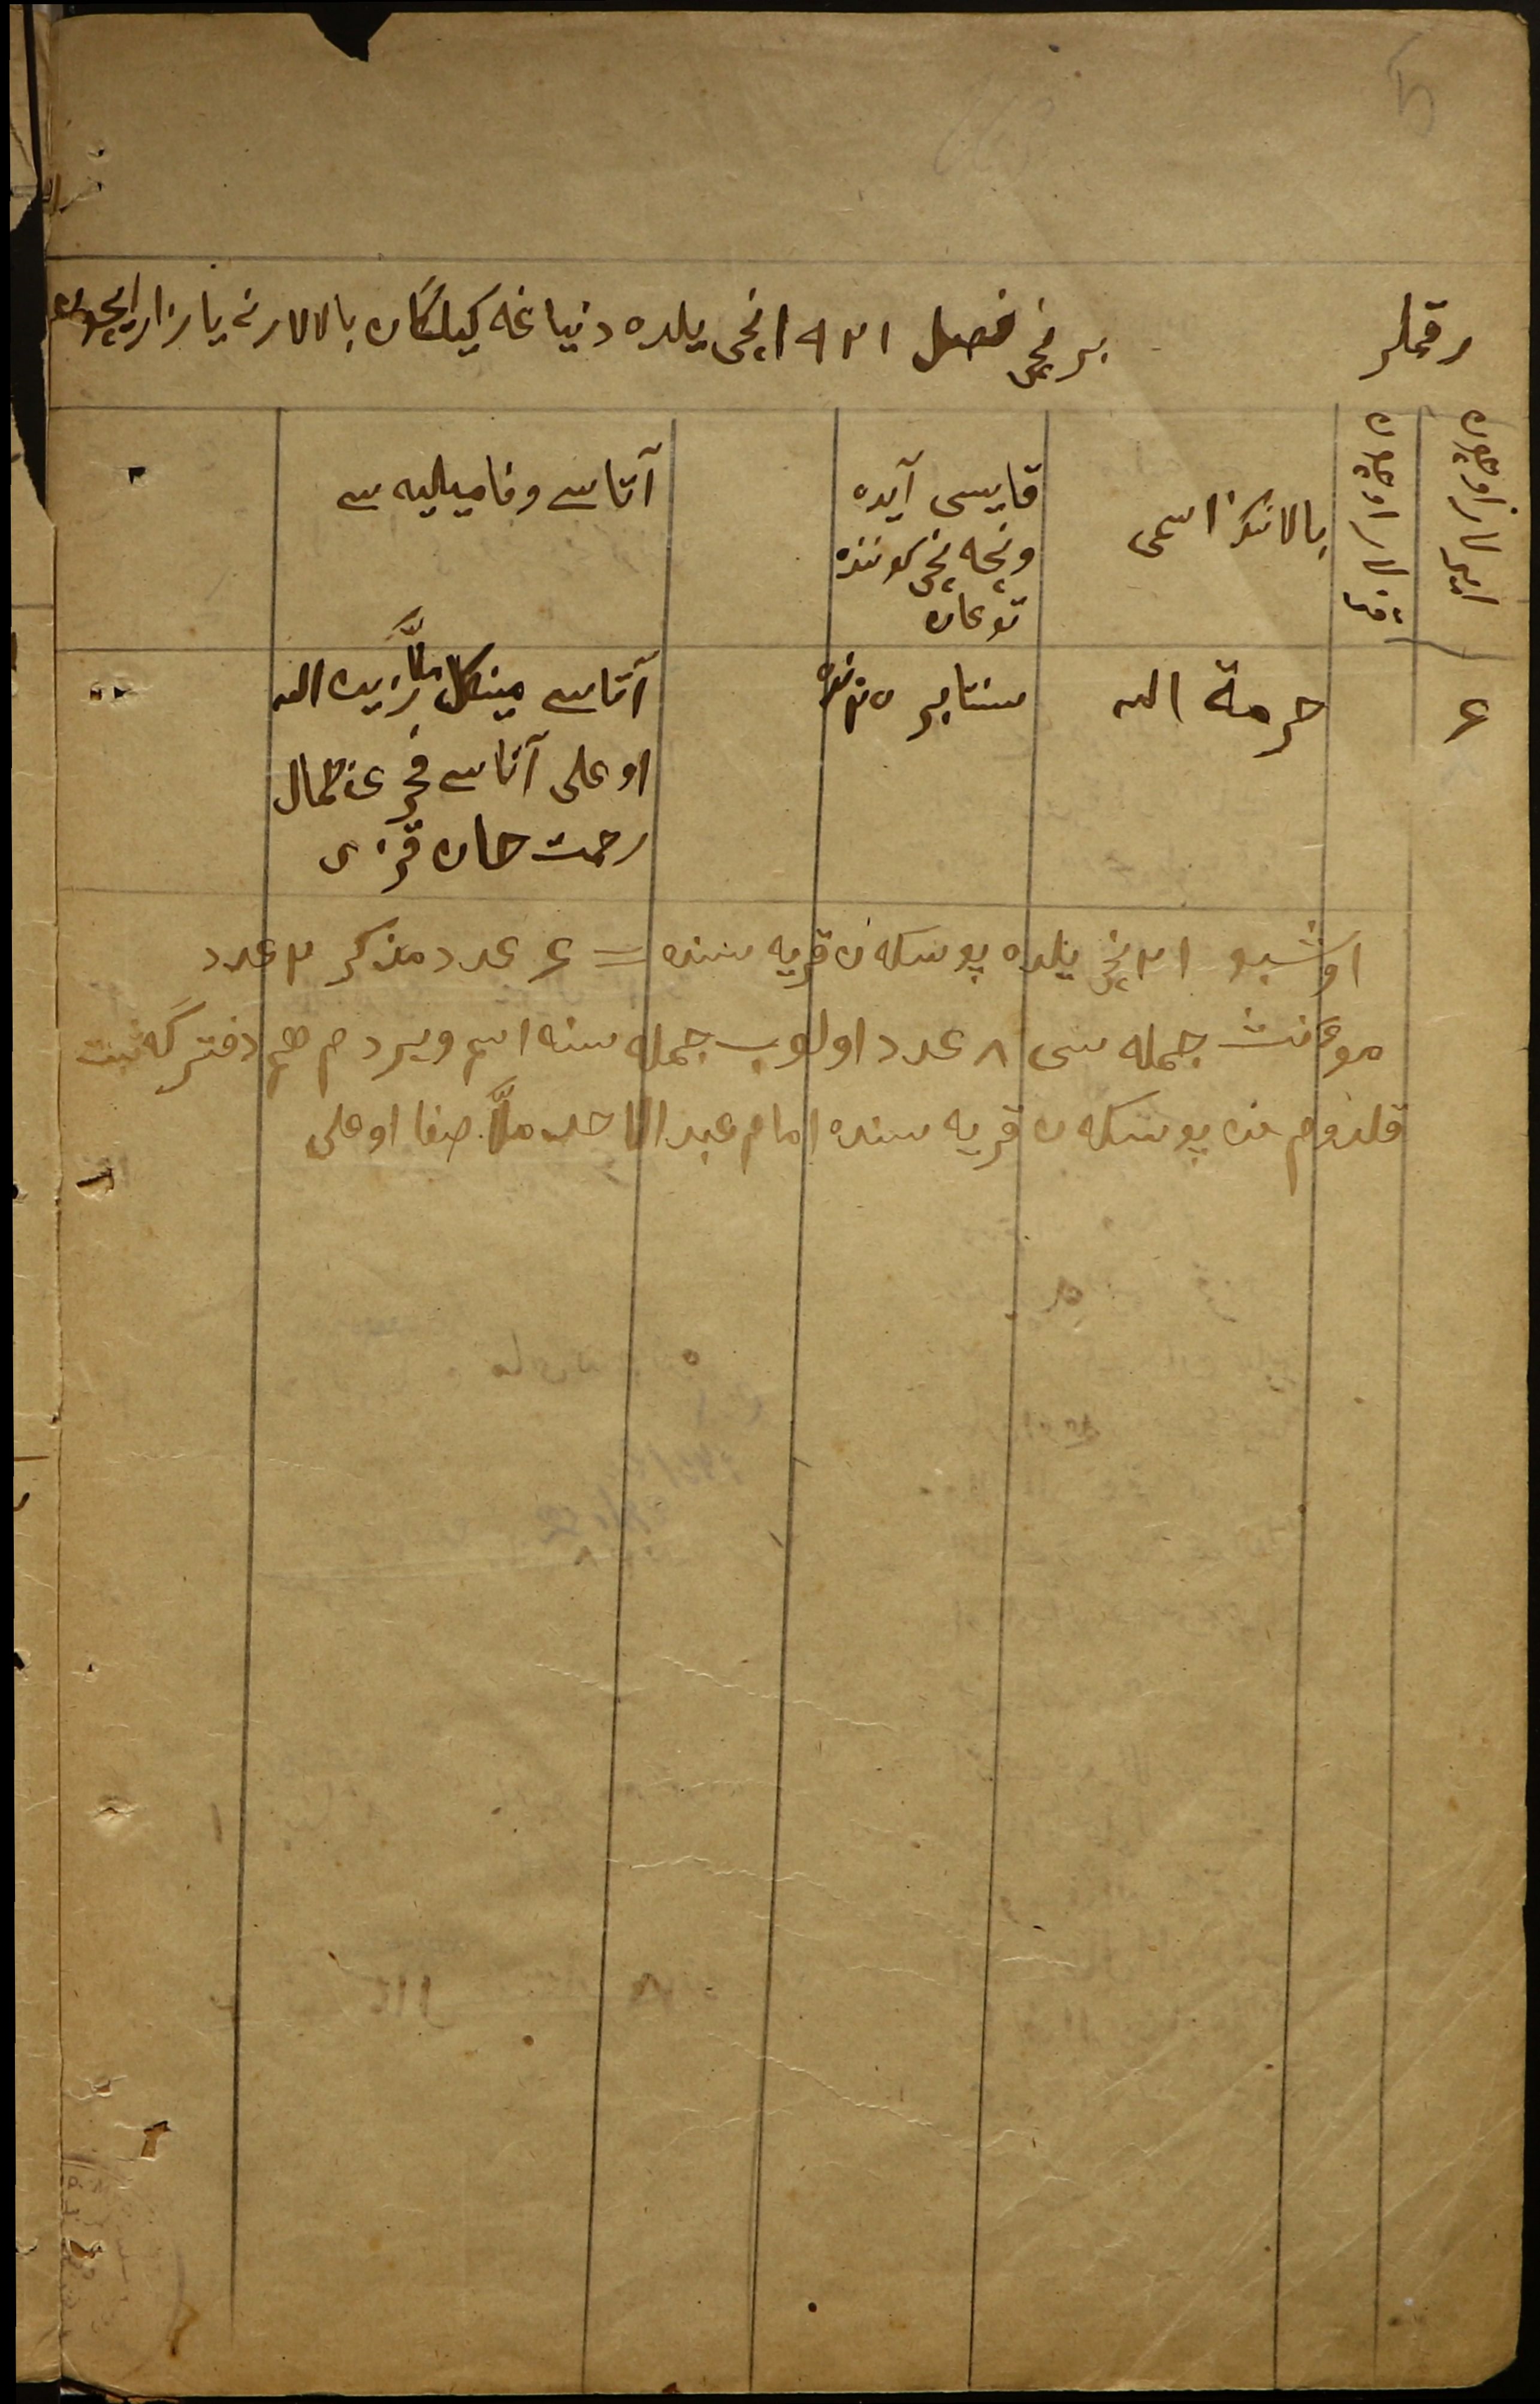 رقملر
برنجی فصل ١٩٢١ نجی یلده دنیاغه کیلگان بالالارنی یازار ایچون
ایرلار اوچون
قزلار اوچون
بالاننڭ اسمی
قایسی آیده
ونچه نجی کوننده
توغان
آتاسی وفامیلیه سی
٤
حرمة الله
سنتابر
آتاسی مینکل ملّا زین الله
اوغلی آناسی فخر
رحمت جان قزی
اوشبو ٢١ نجی یلده پوسکەن قریه سنده = ٤ عدد مذکر ٢ عدد
موءنث جمله سی ٨ عدد اولوب جمله سنه اسم ویردم هم دفترگه ثبت
قلدوم من پوسکەن قریه سنده امام عبد الاحد ملّا صفا اوغلی